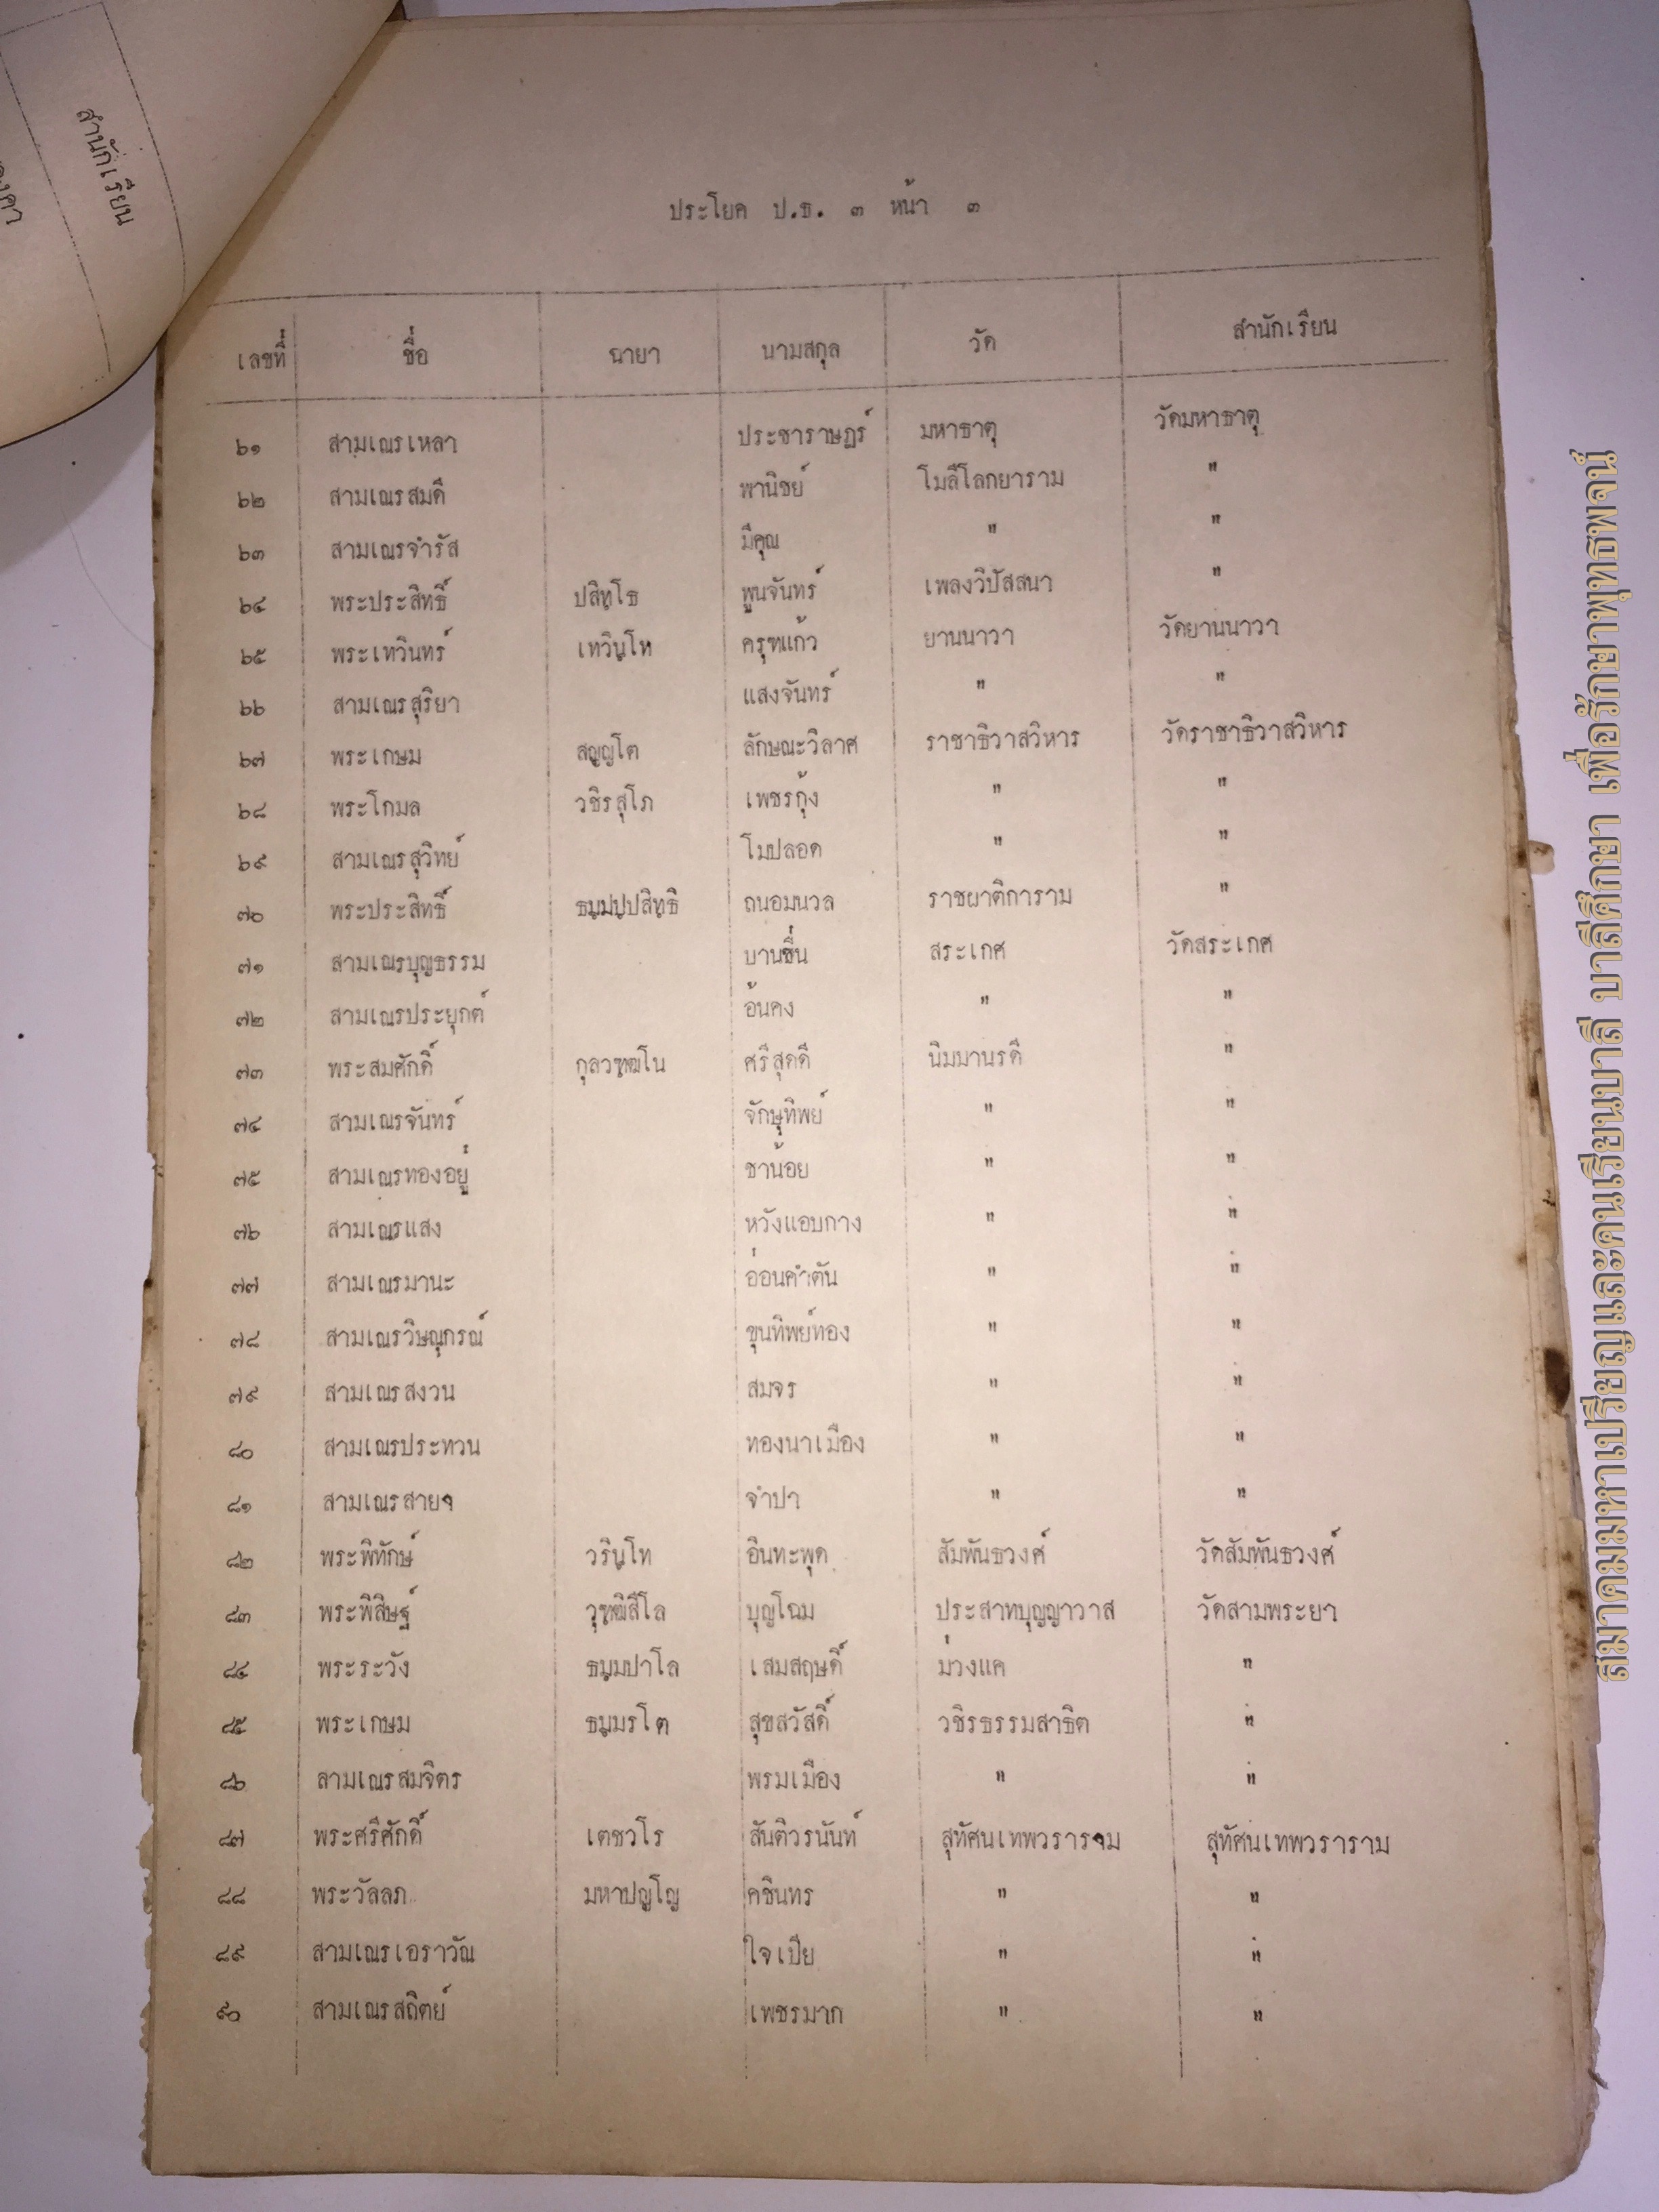 สำนักเรียน
ประโยค ป.ธ. ๓ หน้า ๓
เลขที่ ชื่อ ฉายา นามสกุล วัด สำนักเรียน
๖๑ สามเณรเหลา ประชาราษฎร์ มหาธาตุ วัดมหาธาตุ
๖๒ สามเณรสมดี พานิชย์ โมลีโลกยาราม "
๖๓ สามเณรจำรัส มีคุณ " "
๖๔ พระประสิทธิ์ ปสิทฺโธ พูนจันทร์ เพลงวิปัสสนา "
๖๕ พระเทวินทร์ เทวินฺโท ครุฑแก้ว ยานนาวา วัดยานนาวา
๖๖ สามเณรสุริยา แสงจันทร์ " "
๖๗ พระเกษม สญฺญโต ลักษณะวิลาศ ราชาธิวาสวิหาร วัดราชาธิวาสวิหาร
๖๘ พระโกมล วชิรสุโภ เพชรกุ้ง " "
๖๙ สามเณรสุวิทย์ โมปลอด " "
๗๐ พระประสิทธิ์ ธมฺมปฺปสิทฺธิ ถนอมนวล ราชผาติการาม "
๗๑ สามเณรบุญธรรม บานชื่น สระเกศ วัดสระเกศ
๗๒ สามเณรประยุกต์ อ้นคง " "
๗๓ พระสมศักดิ์ กุลวฑฺฒโน ศรีสุดดี นิมมานรดี "
๗๔ สามเณรจันทร์ จักษุทิพย์ " "
๗๕ สามเณรทองอยู่ ชาน้อย " "
๗๖ สามเณรแสง หวังแอบกาง " "
๗๗ สามเณรมานะ อ่อนคำตัน " "
๗๘ สามเณรวิษณุกรณ์ ขุนทิพย์ทอง " "
๗๙ สามเณรสงวน สมจร " "
๘๐ สามเณรประทวน ทองนาเมือง " "
๘๑ สามเณรสาย จำปา " "
๘๒ พระพิทักษ์ วรินฺโท อินทะพุด สัมพันธวงศ์ วัดสัมพันธวงศ์
๘๓ พระพิสิษฐ์ วุฑฺฒิสีโล บุญโฉม ประสาทบุญญาวาส วัดสามพระยา
๘๔ พระระวัง ธมฺมปาโล เสมสฤษดิ์ ม่วงแค "
๘๕ พระเกษม ธมฺมรโต สุขสวัสดิ์ วชิรธรรมสาธิต "
๘๖ สามเณรสมจิตร พรมเมือง " "
๘๗ พระศรีศักดิ์ เตชวโร สันติวรนันท์ สุทัศนเทพวราราม สุทัศนเทพวราราม
๘๘ พระวัลลภ มหาปญฺโญ คชินทร " "
๘๙ สามเณรเอราวัณ ใจเปีย " "
๙๐ สามเณรสถิตย์ เพชรมาก " "
สมาคมมหาเปรียญและคนเรียนบาลี บาลีศึกษา เพื่อรักษาพุทธพจน์